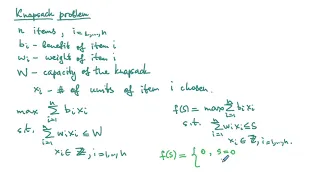 Knapsack problem
n items, i=1,...,n
bi - benefit of item i
wi - weight of item i
W - capacity of the knapsack
xi - # of units of item i chosen.
max ∑ i=1 n bixi
s.t. ∑ i=1 n wixi ≤ W
xi ∈ ℤ, i=1,...,n
f(s) = max ∑ i=1 n bixi
s.t. ∑ i=1 n wixi ≤ s
xi ∈ ℤ, i=1,...,n.
f(s) = { 0, s=0